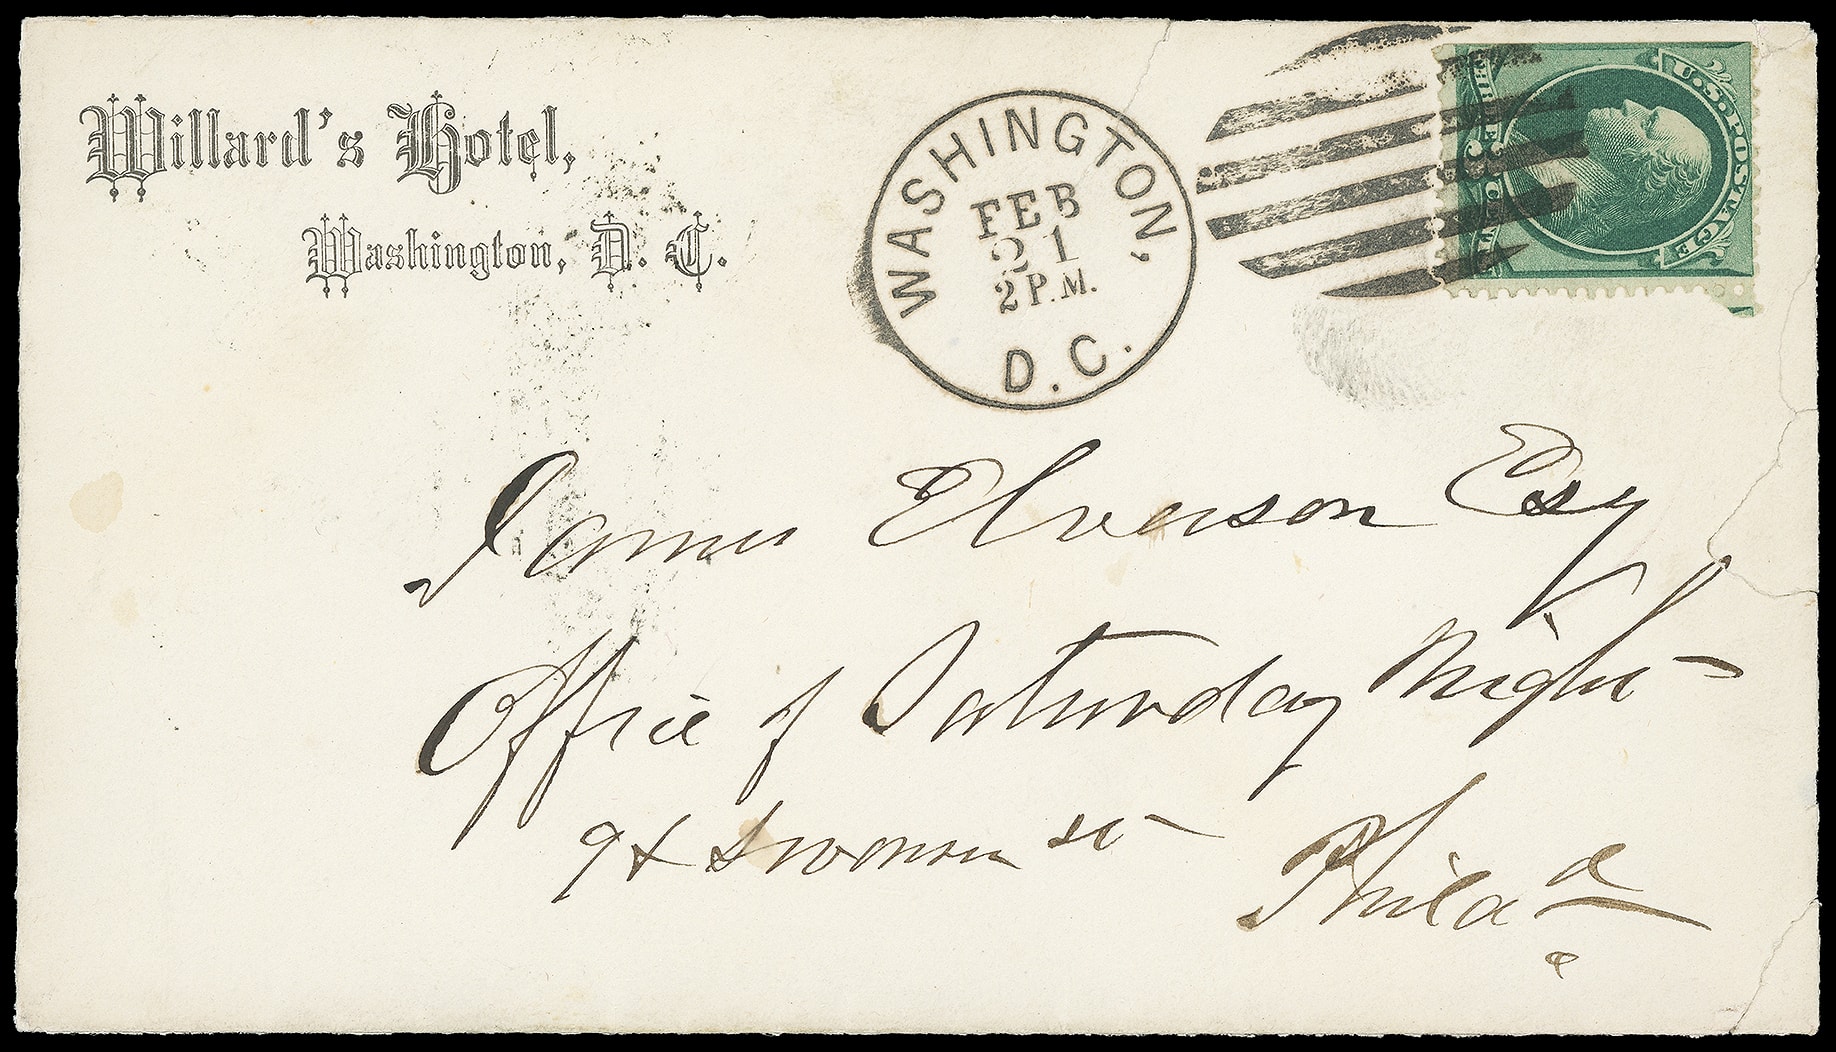 Willard's Hotel,
Washington, D. C.
WASHINGTON, D.C.
FEB
21
2 P.M.
U.S. POSTAGE
THREE 3 CENTS
James Elverson Esq
Office of Saturday Night
9 & Swanson St
Philada